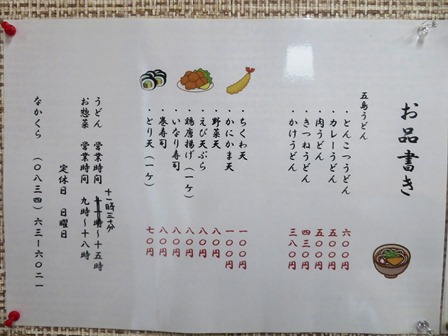 お品書き
五島うどん
・とんこつうどん 六００円
・カレーうどん 五００円
・肉うどん 五００円
・きつねうどん 四三０円
・かけうどん 三八０円
・ちくわ天 一００円
・かにかま天 一００円
・野菜天 八０円
・えび天ぷら 一００円
・鶏唐揚げ（一ケ） 八０円
・いなり寿司 八０円
・巻寿司 八０円
・とり天（一ケ） 七０円
十一時三十分
うどん 営業時間 十一時～十五時
お惣菜 営業時間 九時～十八時
定休日 日曜日
なかくら （０八三四）六三－六０二一